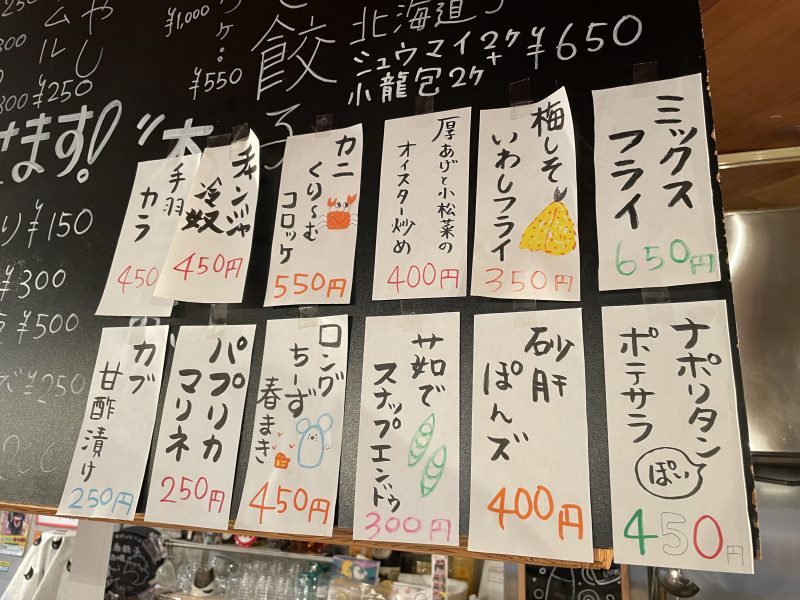 北海道
シュウマイ2ヶ
+
小龍包2ヶ
¥650
餃子
¥1,000
¥550
¥250
けます!
り¥150
¥300
¥500
¥250
ミックス
フライ
650円
梅しそ
いわしフライ
350円
厚あげと小松菜の
オイスター炒め
400円
カニ
くり〜む
コロッケ
550円
チャンジャ
冷奴
450円
手羽
カラ
450
ナポリタン
ぽい
ポテサラ
450円
砂肝
ぽんズ
400円
茹で
スナップエンドゥ
300円
ロング
ちーず
春まき
450円
パプリカ
マリネ
250円
カブ
甘酢漬け
250円